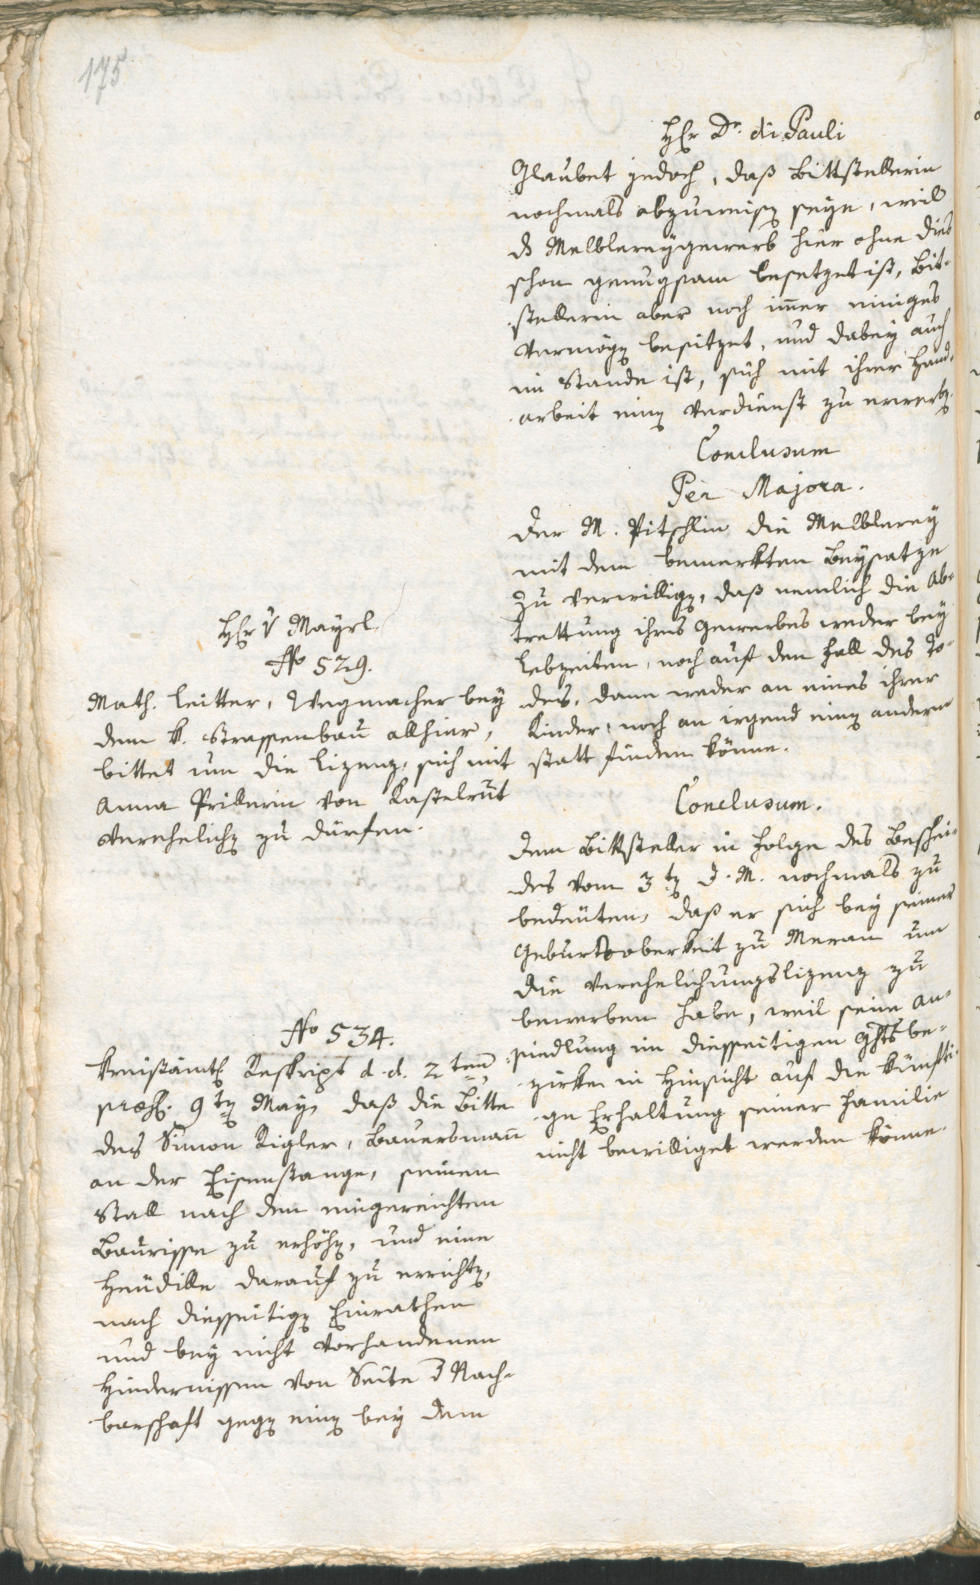 175
Hr Dr. di Pauli
Glaubet jedoch, daß Bittstellerin
nochmals abzuweisen seye, weil
ds Melblereygewerb hier ohne dies
schon genugsam besetzet ist, Bit-
stellerin aber noch immer einiges
Vermögen besitzet, und dabey auch
im Stande ist, sich mit ihrer Hand-
arbeit einen Verdienst zu erwerben.
Conclusum
Per Majora.
Der M. Pitschlin die Melblerey
mit dem bemerkten Beysatze
zu verwilligen, daß nemlich die Ab-
trettung ihres Gewerbes weder bey
Lebzeiten, noch auf den Fall des To-
des, dann weder an eines ihrer
Kinder, noch an irgend einen andern
statt finden könne.
Hr v Mayrl.
No 529.
Math. Leitter, Wegmacher bey
dem k. Strassenbau allhier,
bittet um die Lizenz, sich mit
Anna Prillerin von Kastelrut
verehelichen zu dürfen.
Conclusum.
Dem Bittsteller in Folge des Beschei-
des vom 3ten d. M. nochmals zu
bedeuten, daß er sich bey seiner
Geburtsoberkeit zu Meran um
die Verehelichungslizenz zu
bewerben habe, weil seine An-
siedlung im diesseitigen Ghtsbe-
zirke in Hinsicht auf die künfti-
ge Erhaltung seiner Familie
nicht bewilliget werden könne.
No 534.
Kreisämtl Reskript d. d. 2ten
præs. 9ten May, daß die Bitte
des Simon Rigler, Bauersmann
an der Eisenstange, seinen
Stall nach dem eingereichten
Baurisse zu erhöhen, und eine
Heudille darauf zu errichten,
nach diesseitigen Einrathen
und bey nicht vorhandenen
Hindernissen von Seite d Nach-
barschaft gegen einen bey dem